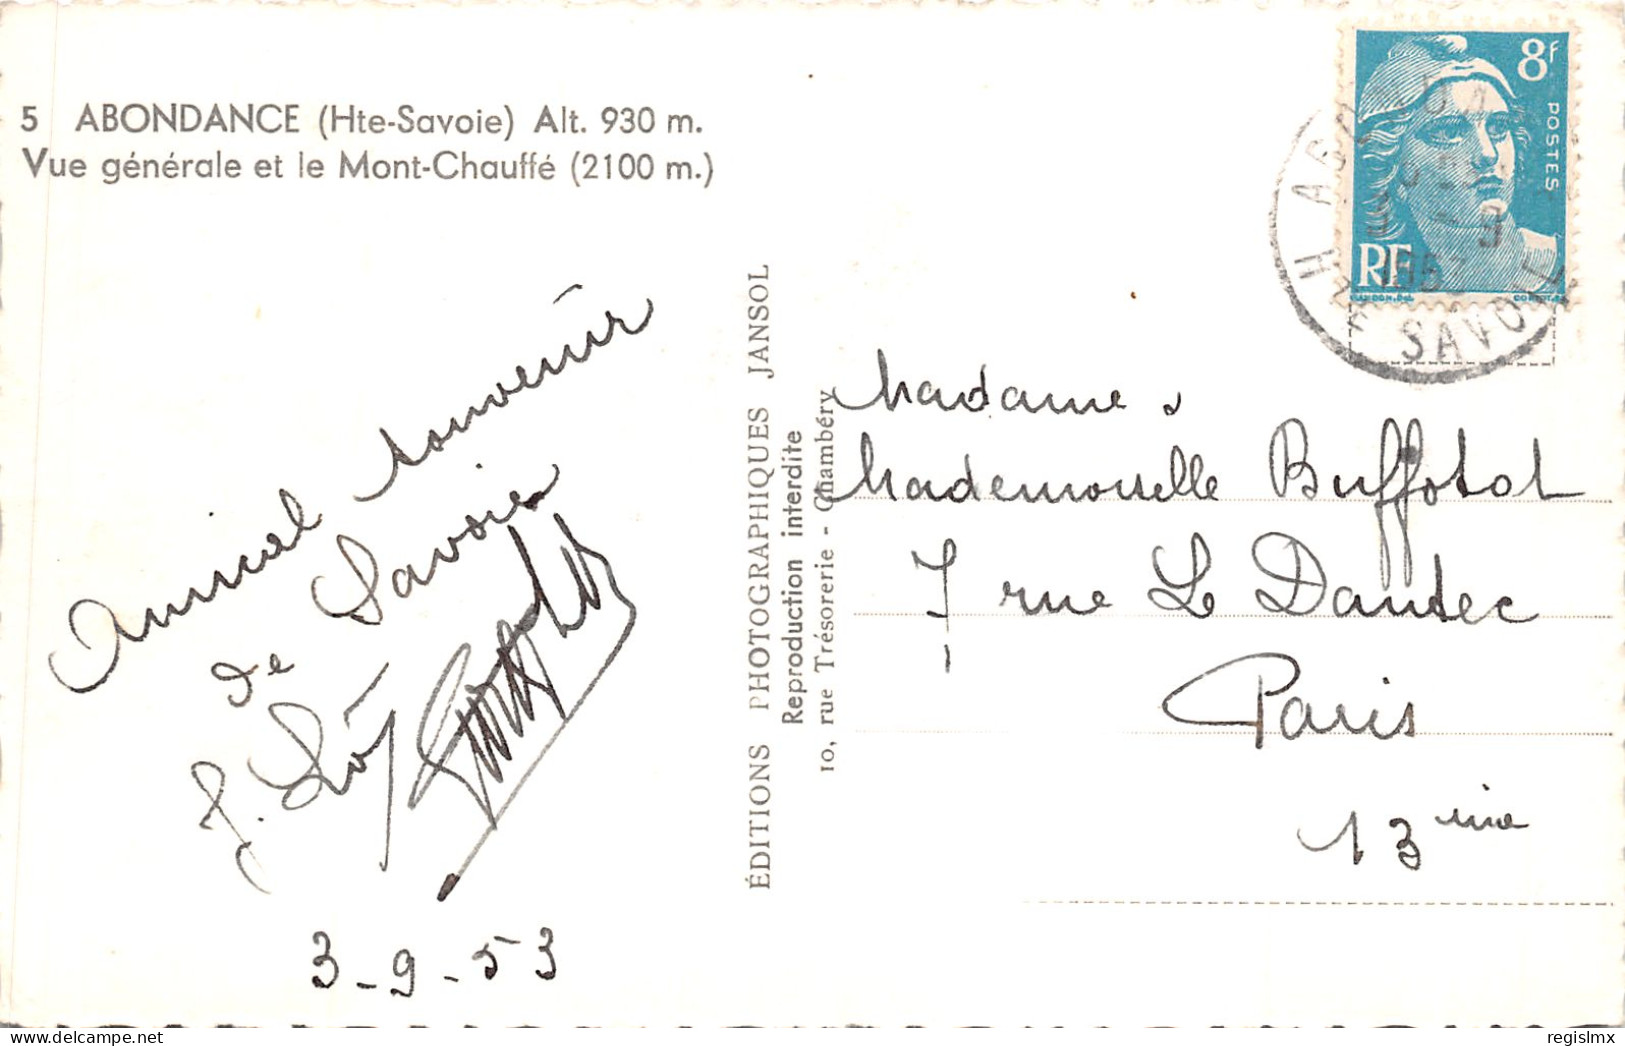 5 ABONDANCE (Hte-Savoie) Alt. 930 m.
Vue générale et le Mont-Chauffé (2100 m.)
Amical souvenir
de Savoie
J.
3-9-53
ÉDITIONS PHOTOGRAPHIQUES JANSOL
Reproduction interdite
10, rue Trésorerie - Chambéry
8F
POSTES
RF
GANDON.Del
SAVOIE
Madame,
Mademoiselle Buffotot
7 rue Le Dantec
Paris
13 ème
regislmx